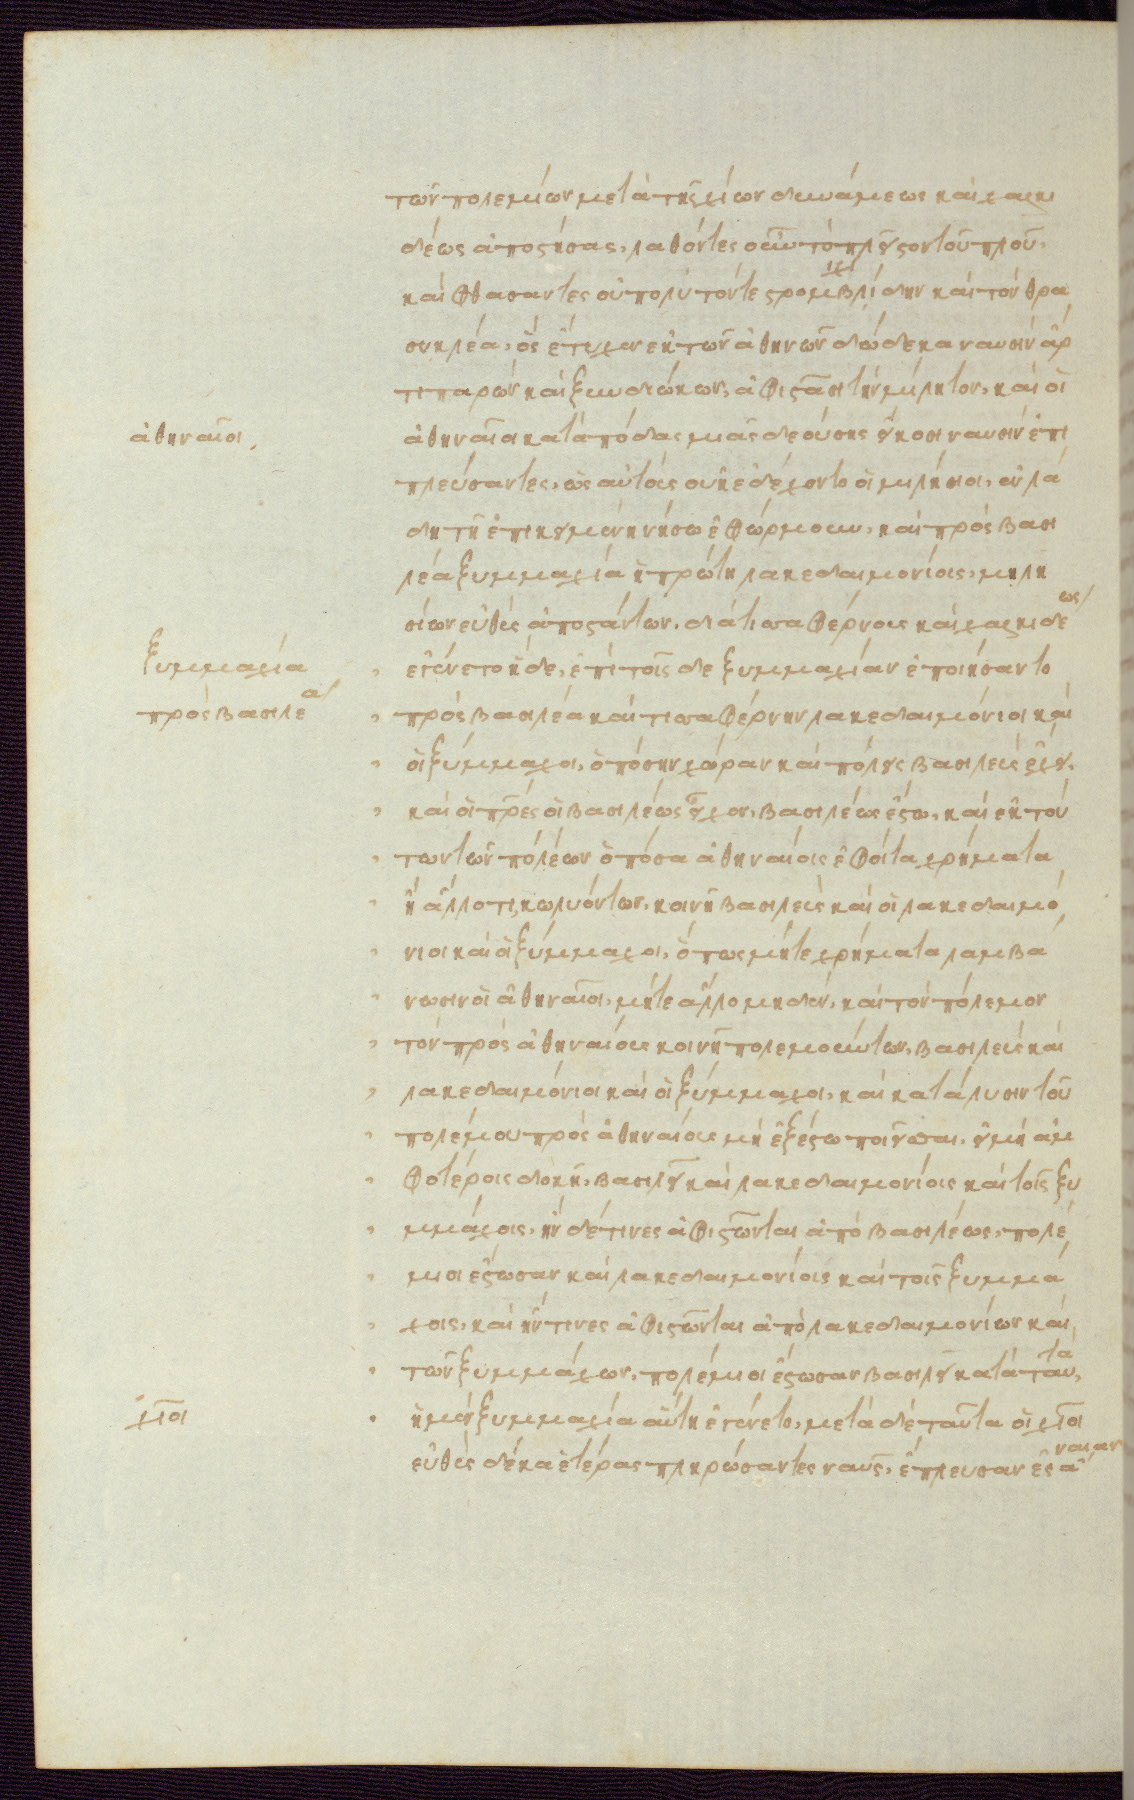 τῶν πολεμίων μετὰ τῆς χίων δυνάμεως καὶ χαλκι
δέως ἀποστήσας, λαθόντες οὖν τὸ πλεῖστον τοῦ πλοῦ,
καὶ φθάσαντες οὐ πολὺ τόν τε στρομβιχίδην καὶ τὸν θρα
συκλέα, ὃς ἔτυχεν ἐκ τῶν ἀθηνῶν δώδεκα ναυσὶν ἄρ
τι παρὼν καὶ ξυνδιώκων, ἀφιστᾶσι τὴν μίλητον, καὶ οἱ
ἀθηναῖοι
ἀθηναῖοι κατὰ πόδας μιᾶς δεούσης εἴκοσι ναυσὶν ἐπι
πλεύσαντες, ὡς αὐτοὺς οὐκ ἐδέχοντο οἱ μιλήσιοι, ἐν λά
δῃ τῇ ἐπικειμένῃ νήσῳ ἐφώρμουν, καὶ πρὸς βασι
λέα ξυμμαχία ἡ πρώτη λακεδαιμονίοις, μιλη
σίων εὐθὺς ἀποστάντων, διὰ τισσαφέρνους καὶ χαλκιδέως
ξυμμαχία
ἐγένετο ἥδε, ἐπὶ τοῖσδε ξυμμαχίαν ἐποιήσαντο
πρὸς βασιλέα
πρὸς βασιλέα καὶ τισσαφέρνην λακεδαιμόνιοι καὶ
οἱ ξύμμαχοι, ὁπόσην χώραν καὶ πόλεις βασιλεὺς ἔχει,
καὶ οἱ πρ̅ες οἱ βασιλέως εἶχον, βασιλέως ἔστω, καὶ ἐκ τού
των τῶν πόλεων ὁπόσα ἀθηναίοις ἐφοίτα χρήματα
ἢ ἄλλο τι, κωλυόντων, κοινῇ βασιλεὺς καὶ οἱ λακεδαιμό
νιοι καὶ οἱ ξύμμαχοι, ὅπως μήτε χρήματα λαμβά
νωσιν οἱ ἀθηναῖοι, μήτε ἄλλο μηδὲν, καὶ τὸν πόλεμον
τὸν πρὸς ἀθηναίους κοινῇ πολεμούντων, βασιλεὺς καὶ
λακεδαιμόνιοι καὶ οἱ ξύμμαχοι, καὶ κατάλυσιν τοῦ
πολέμου πρὸς ἀθηναίους μὴ ἐξέστω ποιεῖσθαι, εἰ μὴ ἀμ
φοτέροις δοκῇ, βασιλεῖ καὶ λακεδαιμονίοις καὶ τοῖς ξυ
μμάχοις, ἢν δέ τινες ἀφιστῶνται ἀπὸ βασιλέως, πολέ
μιοι ἔστωσαν καὶ λακεδαιμονίοις καὶ τοῖς ξυμμά
χοις, καὶ ἤν τινες ἀφιστῶνται ἀπὸ λακεδαιμονίων καὶ
τῶν ξυμμάχων, πολέμιοι ἔστωσαν βασιλεῖ κατὰ ταυτά,
χῖοι
ἡ μὲν ξυμμαχία αὕτη ἐγένετο, μετὰ δὲ ταῦτα οἱ χῖοι
εὐθὺς δέκα ἑτέρας πληρώσαντες ναῦς, ἔπλευσαν ἐς ἄναιαν